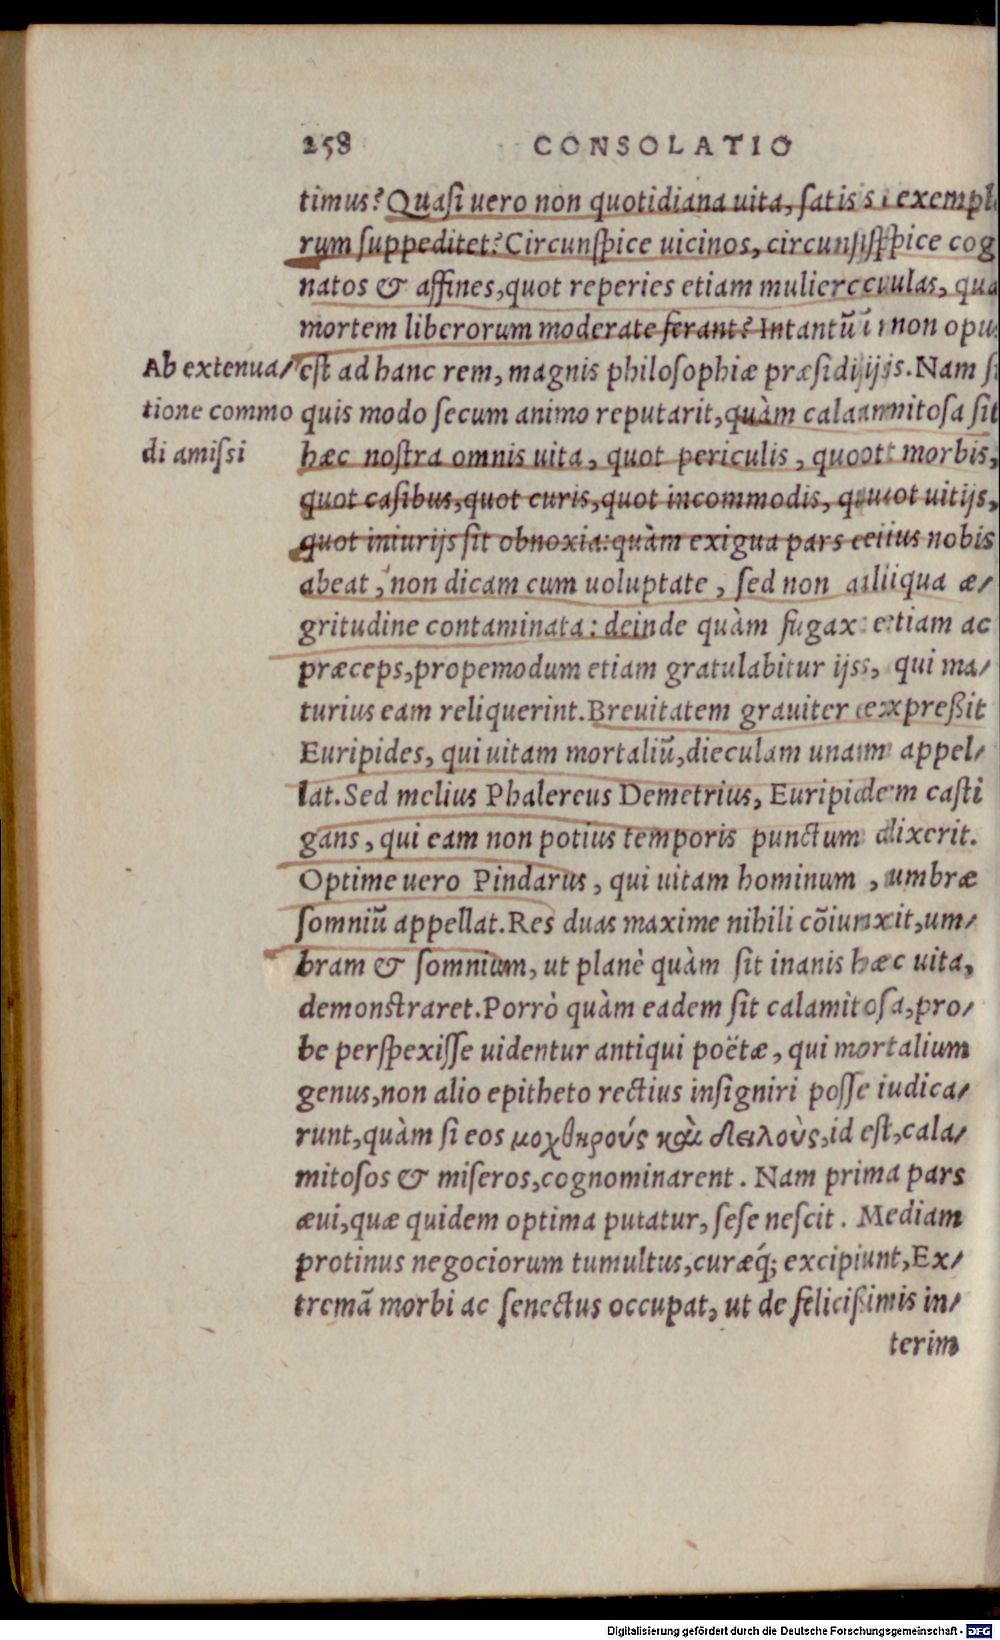 258 CONSOLATIO
timus? Quasi uero non quotidiana uita, satis exemplo
rum suppeditet? Circunspice uicinos, circunspice cog
natos & affines, quot reperies etiam mulierculas, quæ
mortem liberorum moderate ferant? In tantũ non opus
Ab extenua/
est ad hanc rem, magnis philosophiæ præsidijs. Nam si
tione commo
quis modo secum animo reputarit, quàm calamitosa sit
di amissi
hæc nostra omnis uita, quot periculis, quot morbis,
quot casibus, quot curis, quot incommodis, quot uitijs,
quot iniurijs sit obnoxia: quàm exigua pars eius nobis
abeat, non dicam cum uoluptate, sed non aliqua æ/
gritudine contaminata: deinde quàm fugax etiam ac
præceps, propemodum etiam gratulabitur ijs, qui ma/
turius eam reliquerint. Breuitatem grauiter expreßit
Euripides, qui uitam mortaliũ, dieculam unam appel/
lat. Sed melius Phalereus Demetrius, Euripidem casti
gans, qui eam non potius temporis punctum dixerit.
Optime uero Pindarus, qui uitam hominum, umbræ
somniũ appellat. Res duas maxime nihili cõiunxit, um/
bram & somnium, ut planè quàm sit inanis hæc uita,
demonstraret. Porrò quàm eadem sit calamitosa, pro/
be perspexisse uidentur antiqui poëtæ, qui mortalium
genus, non alio epitheto rectius insigniri posse iudica/
runt, quàm si eos μοχθηρούς καὶ δειλοὺς, id est, cala/
mitosos & miseros, cognominarent. Nam prima pars
æui, quæ quidem optima putatur, sese nescit. Mediam
protinus negociorum tumultus, curæq́; excipiunt, Ex/
tremã morbi ac senectus occupat, ut de felicißimis in/
terim
Digitalisierung gefördert durch die Deutsche Forschungsgemeinschaft - DFG